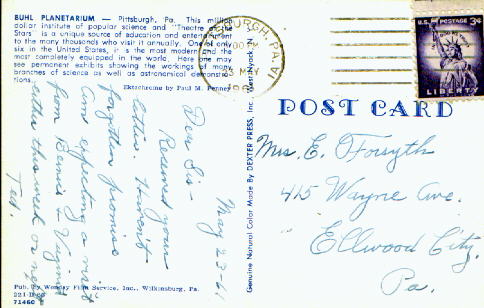 BUHL PLANETARIUM — Pittsburgh, Pa. This million
dollar institute of popular science and "Theatre of the
Stars" is a unique source of education and entertainment
to the many thousands who visit it annually. One of only
six in the United States, it is the most modern and the
most completely equipped in the world. Here one may
see permanent exhibits showing the workings of many
branches of science as well as astronomical demonstra-
tions.
Ektachrome by Paul M. Penney
May 23-61
Dear Sis-
Received your
letter. Haven't
forgotten promise
Am expecting a visit
from Bernie & Virginia
either this week or next
Ted.
Pub. By Wendy Film Service, Inc., Wilkinsburg, Pa.
71460
Genuine Natural Color Made By DEXTER PRESS, Inc. West Nyack, N.Y.
PITTSBURGH, PA.
MAY
U.S. POSTAGE 3¢
LIBERTY
POST CARD
Mrs. E. Forsyth
415 Wayne Ave.
Ellwood City,
Pa.